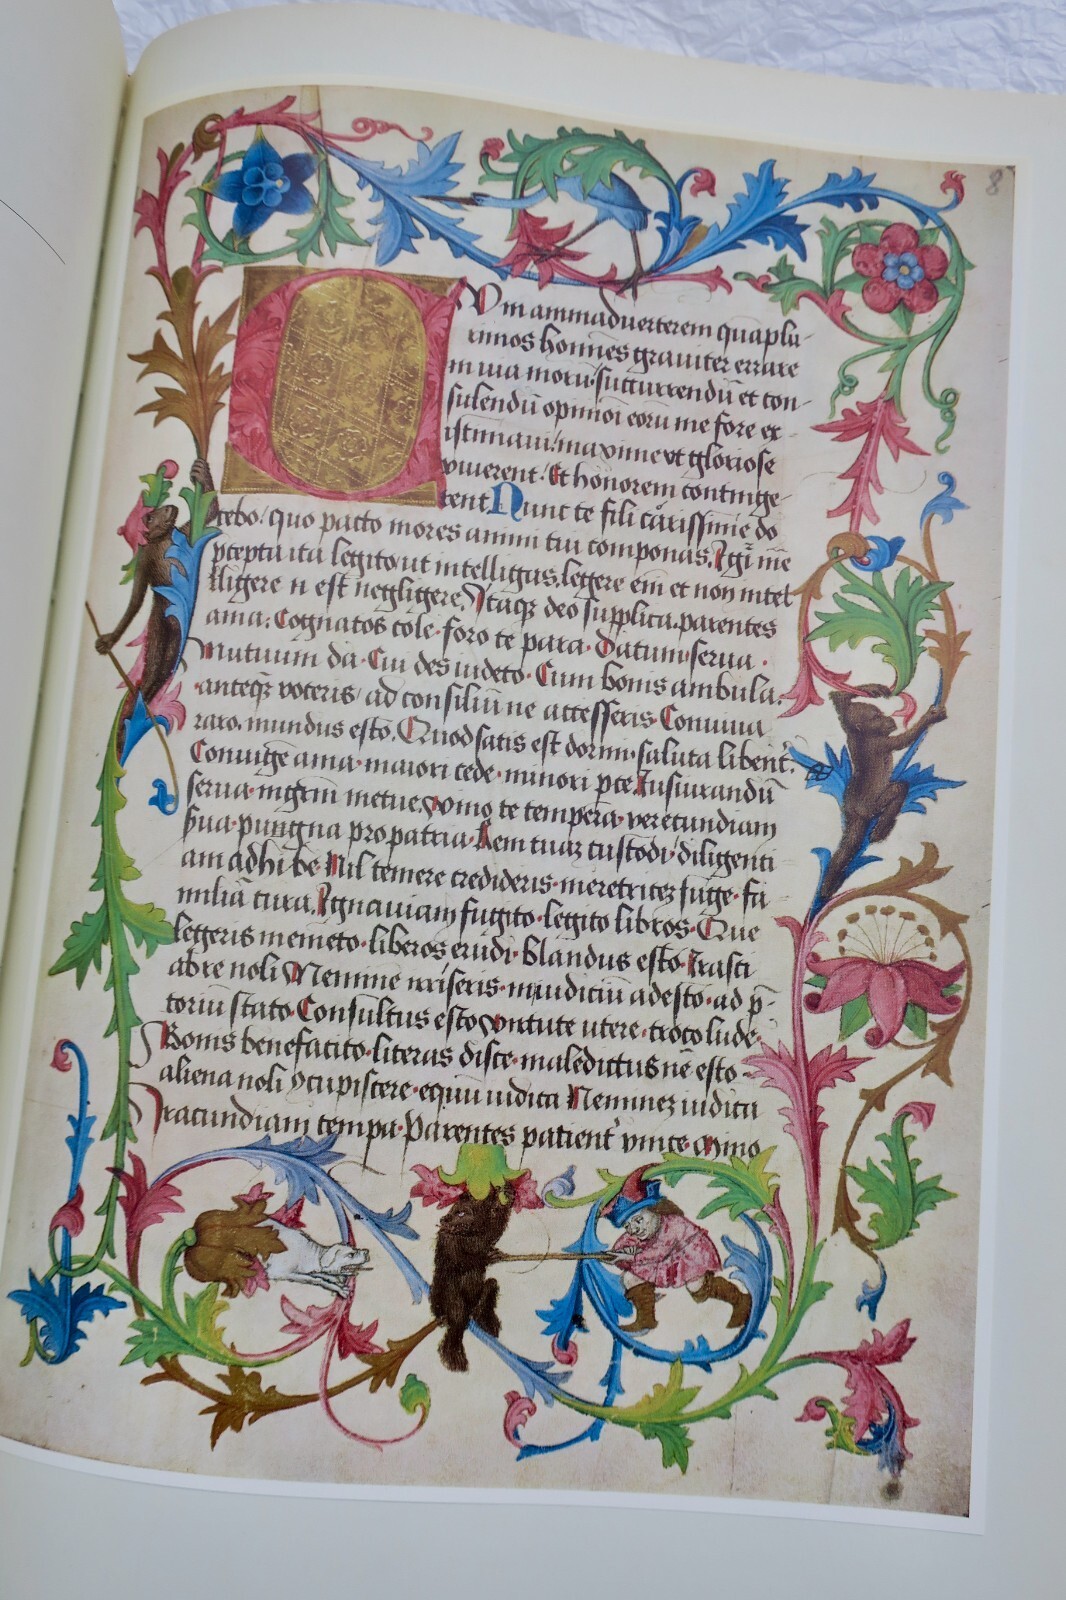 8
Cum animaduerterem quāplu-
rimos homines grauiter errare
in uia morū succurrendū et con-
sulendū opinioī eorū me fore ex-
istimaui maxime vt gloriose
viuerent Et honorem continge-
rent Nunc te fili cārissime do
cebo quo pacto mores animi tui componas Igī mē
p̄cepta ita legito ut intelligas legere em̄ et non intel
lligere n̄ est negligere Itaqꝫ deo supplica parentes
ama Cognatos cole foro te para Datum serua
Mutuum da Cui des uideto Cum bonis ambula
anteqꝫ voceris ad consiliū ne accesseris Conuiua
raro mundus esto Quod satis est dormi saluta libent̄
Coniugē ama maiori cede minori p̄ce Iusiurandū
serua mḡrm̄ metue vino te tempera verecundiam
s̄ua pungna pro patria Rem tuaꝫ custodi diligenti
am adhibe Nil temere credideris meretriceꝫ fuge fa
miliā cura Ignauiam fugito legito libros Que
legeris memēto liberos erudi blandus esto Irasci
ab re noli Neminē irriseris in iudiciū adesto ad p̄-
toriū stato Consultus esto virtute utere troco lude
Bonis benefacito literas disce maledictus nē esto
aliena noli ɔcupiscere equū iudica Neminez iudica
Iracundiam tempa Parentes patient̄ vince Mino